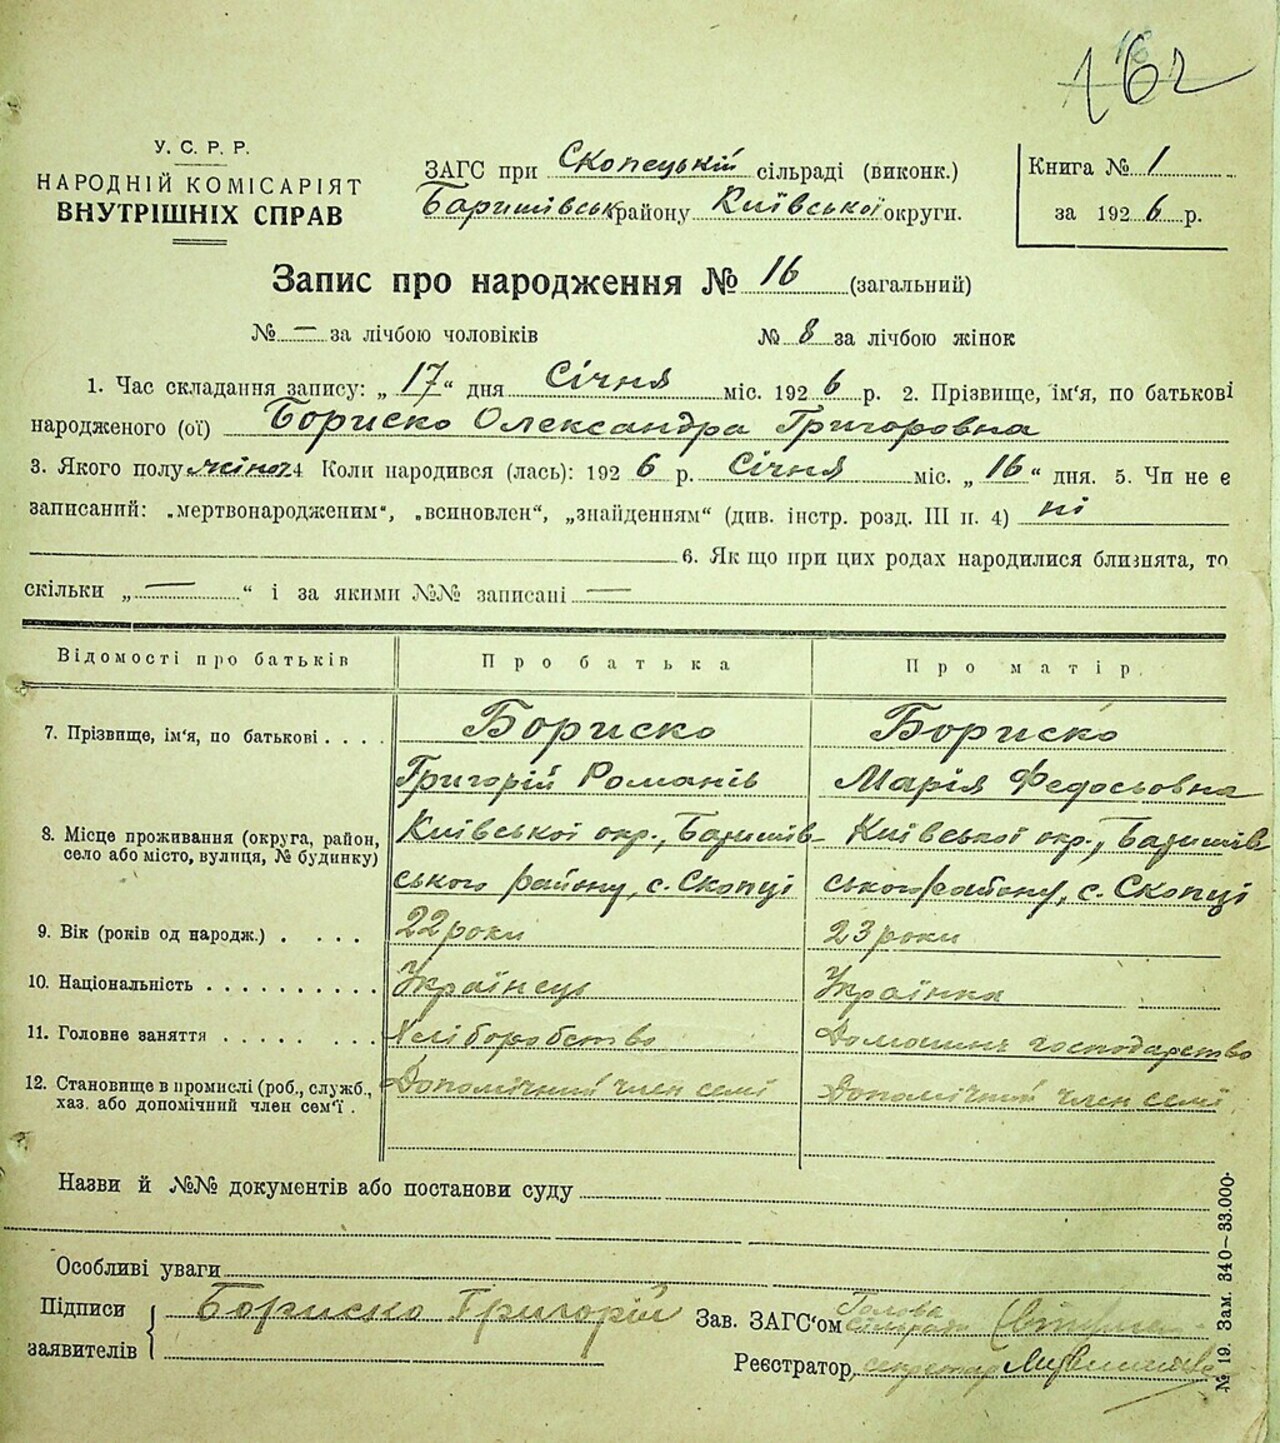 162
У. С. Р. Р.
НАРОДНІЙ КОМІСАРІЯТ
ВНУТРІШНІХ СПРАВ
ЗАГС при Скопецькій сільраді (виконк.)
Баришівськ району Київської округи.
Книга № 1
за 1926 р.
Запис про народження № 16 (загальний)
№ — за лічбою чоловіків № 8 за лічбою жінок
1. Час складання запису: „ 17 “ дня Січня міс. 1926 р. 2. Прізвище, ім'я, по батькові
народженого (ої) Бориско Олександра Григоровна
3. Якого полу жіноч 4 Коли народився (лась): 1926 р. Січня міс. „ 16 “ дня. 5. Чи не є
записаний: „мертвонародженим“, „всиновлен“, „знайденням“ (див. інстр. розд. III п. 4) ні
6. Як що при цих родах народилися близнята, то
скільки „ — “ і за якими №№ записані —
Відомості про батьків Про батька Про матір.
7. Прізвище, ім'я, по батькові . . . . Бориско Бориско
Григорій Романів Марія Федосьовна
8. Місце проживання (округа, район, Київської окр., Баришів- Київської окр., Баришів
село або місто, вулиця, № будинку)
ського району, с. Скопці ського району, с. Скопці
9. Вік (років од народж.) . . . . 22 роки 23 роки
10. Національність . . . . . . . . . . Українець Українка
11. Головне заняття . . . . . . . . Хліборобство Домашнє господарство
12. Становище в промислі (роб., служб., Допомічний член семї Допомічний член семї
хаз. або допомічний член сем'ї .
Назви й №№ документів або постанови суду
Особливі уваги
Підписи
заявителів
Бориско Григорій
Зав. ЗАГС'ом Голова
сільради
Реєстратор, секретар
№ 19. Зам. 340—33.000.